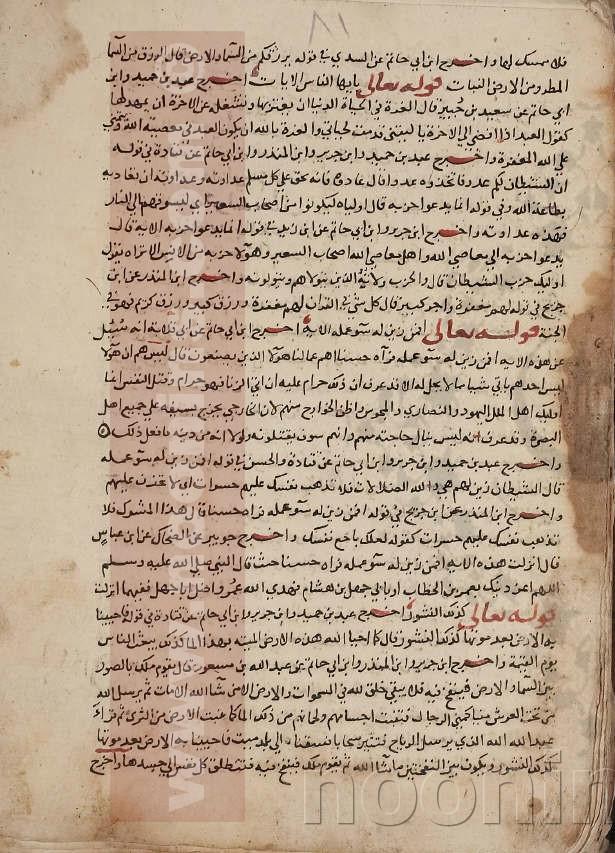 ٨١
فلا ممسك لها واخرج ابن ابي حاتم عن السدي في قوله يرزقكم من السماء والارض قال الرزق من السما
المطر ومن الارض النبات قوله تعالى يايها الناس الايات اخرج عبد بن حميد وابن
ابي حاتم عن سعيد بن جبير قال الغرة في الحياة الدنيا ان يغتر بها وتشغله عن الاخرة ان يمهد لها
كقول العبد اذا افضي الي الاخرة يا ليتني قدمت لحياتي والغرة بالله ان يكون العبد في معصية الله ويتمني
علي الله المغفرة واخرج عبد بن حميد وابن جرير وابن المنذر وابن ابي حاتم عن قتادة في قوله
ان الشيطان لكم عدو فاتخذوه عدوا قال عادوه فانه يحق علي كل مسلم عداوته وعداوته ان يعاديه
بطاعة الله وفي قوله انما يدعوا حزبه قال اولياه ليكونوا من اصحاب السعير اي ليسوقهم الي النار
فهذه عداوته واخرج ابن جرير وابن ابي حاتم عن ابن زيد في قوله انما يدعوا حزبه الاية قال
يدعوا حزبه الي معاصي الله واهل معاصي الله اصحاب السعير وهولا حزبه من الانس الا تراه يقول
اوليك حزب الشيطان قال والحزب ولاته الذين يتولاهم ويتولونه واخرج ابن المنذر عن ابن
جريج في قوله لهم مغفرة واجر كبير قال كل شي في القران لهم مغفرة ورزق كبير ورزق كريم فهو في
الجنة قوله تعالى افمن زين له سوء عمله الاية اخرج ابن ابي حاتم عن ابي قلابة انه سئل
عن هذه الاية افمن زين له سوء عمله فراه حسنا اهم عمالنا هولا الذين يصنعون قال ليس هم ان هولا
ليس احدهم ياتي شيا مما لا يحل له الا قد عرف ان ذلك حرام عليه ان اتي الزنا فهو حرام وقتل النفس انما
اوليك اهل الملل اليهود والنصاري والمجوس واظن الخوارج منهم لان الخارجي يخرج بسيفه علي جميع اهل
البصرة وقد عرف انه ليس ينال حاجته منهم وانهم سوف يقتلونه ولولا انه من دينه ما فعل ذلك
واخرج عبد بن حميد وابن جرير وابن ابي حاتم عن قتادة والحسن في قوله افمن زين له سوء عمله
قال الشيطان زين لهم هي والله الضلالات فلا تذهب نفسك عليهم حسرات اي لا تحزن عليهم
واخرج ابن المنذر عن ابن جريج في قوله افمن زين له سوء عمله فراه حسنا قال هذا المشرك فلا
تذهب نفسك عليهم حسرات كقوله لعلك باخع نفسك واخرج جويبر عن الضحاك عن ابن عباس
قال انزلت هذه الاية افمن زين له سوء عمله فراه حسنا حيث قال النبي صلي الله عليه وسلم
اللهم اعز دينك بعمر بن الخطاب او بابي جهل بن هشام فهدي الله عمر واضل ابا جهل ففيهما انزلت
قوله تعالى كذلك النشور اخرج عبد بن حميد وابن جرير وابن ابي حاتم عن قتادة في قوله فاحيينا
به الارض بعد موتها كذلك النشور قال كما احيا الله هذه الارض الميتة بهذا الماء كذلك يبعث الناس
يوم القيمة واخرج ابن جرير وابن المنذر وابن ابي حاتم عن عبد الله بن مسعود قال يقوم ملك بالصور
بين السما والارض فينفخ فيه فلا يبقي خلق لله في السموات والارض الا من شا الله الا مات ثم يرسل الله
من تحت العرش منيا كمني الرجال فتنبت اجسامهم ولحمانهم من ذلك الما كما تنبت الارض من الثري ثم قراء
عبد الله الله الذي يرسل الرياح فتثير سحابا فسقناه الي بلد ميت فاحيينا به الارض بعد موتها
كذلك النشور ويكون بين النفختين ما شا الله ثم يقوم ملك فينفخ فيه فتنطلق كل نفس الي جسدها واخرج
noonin